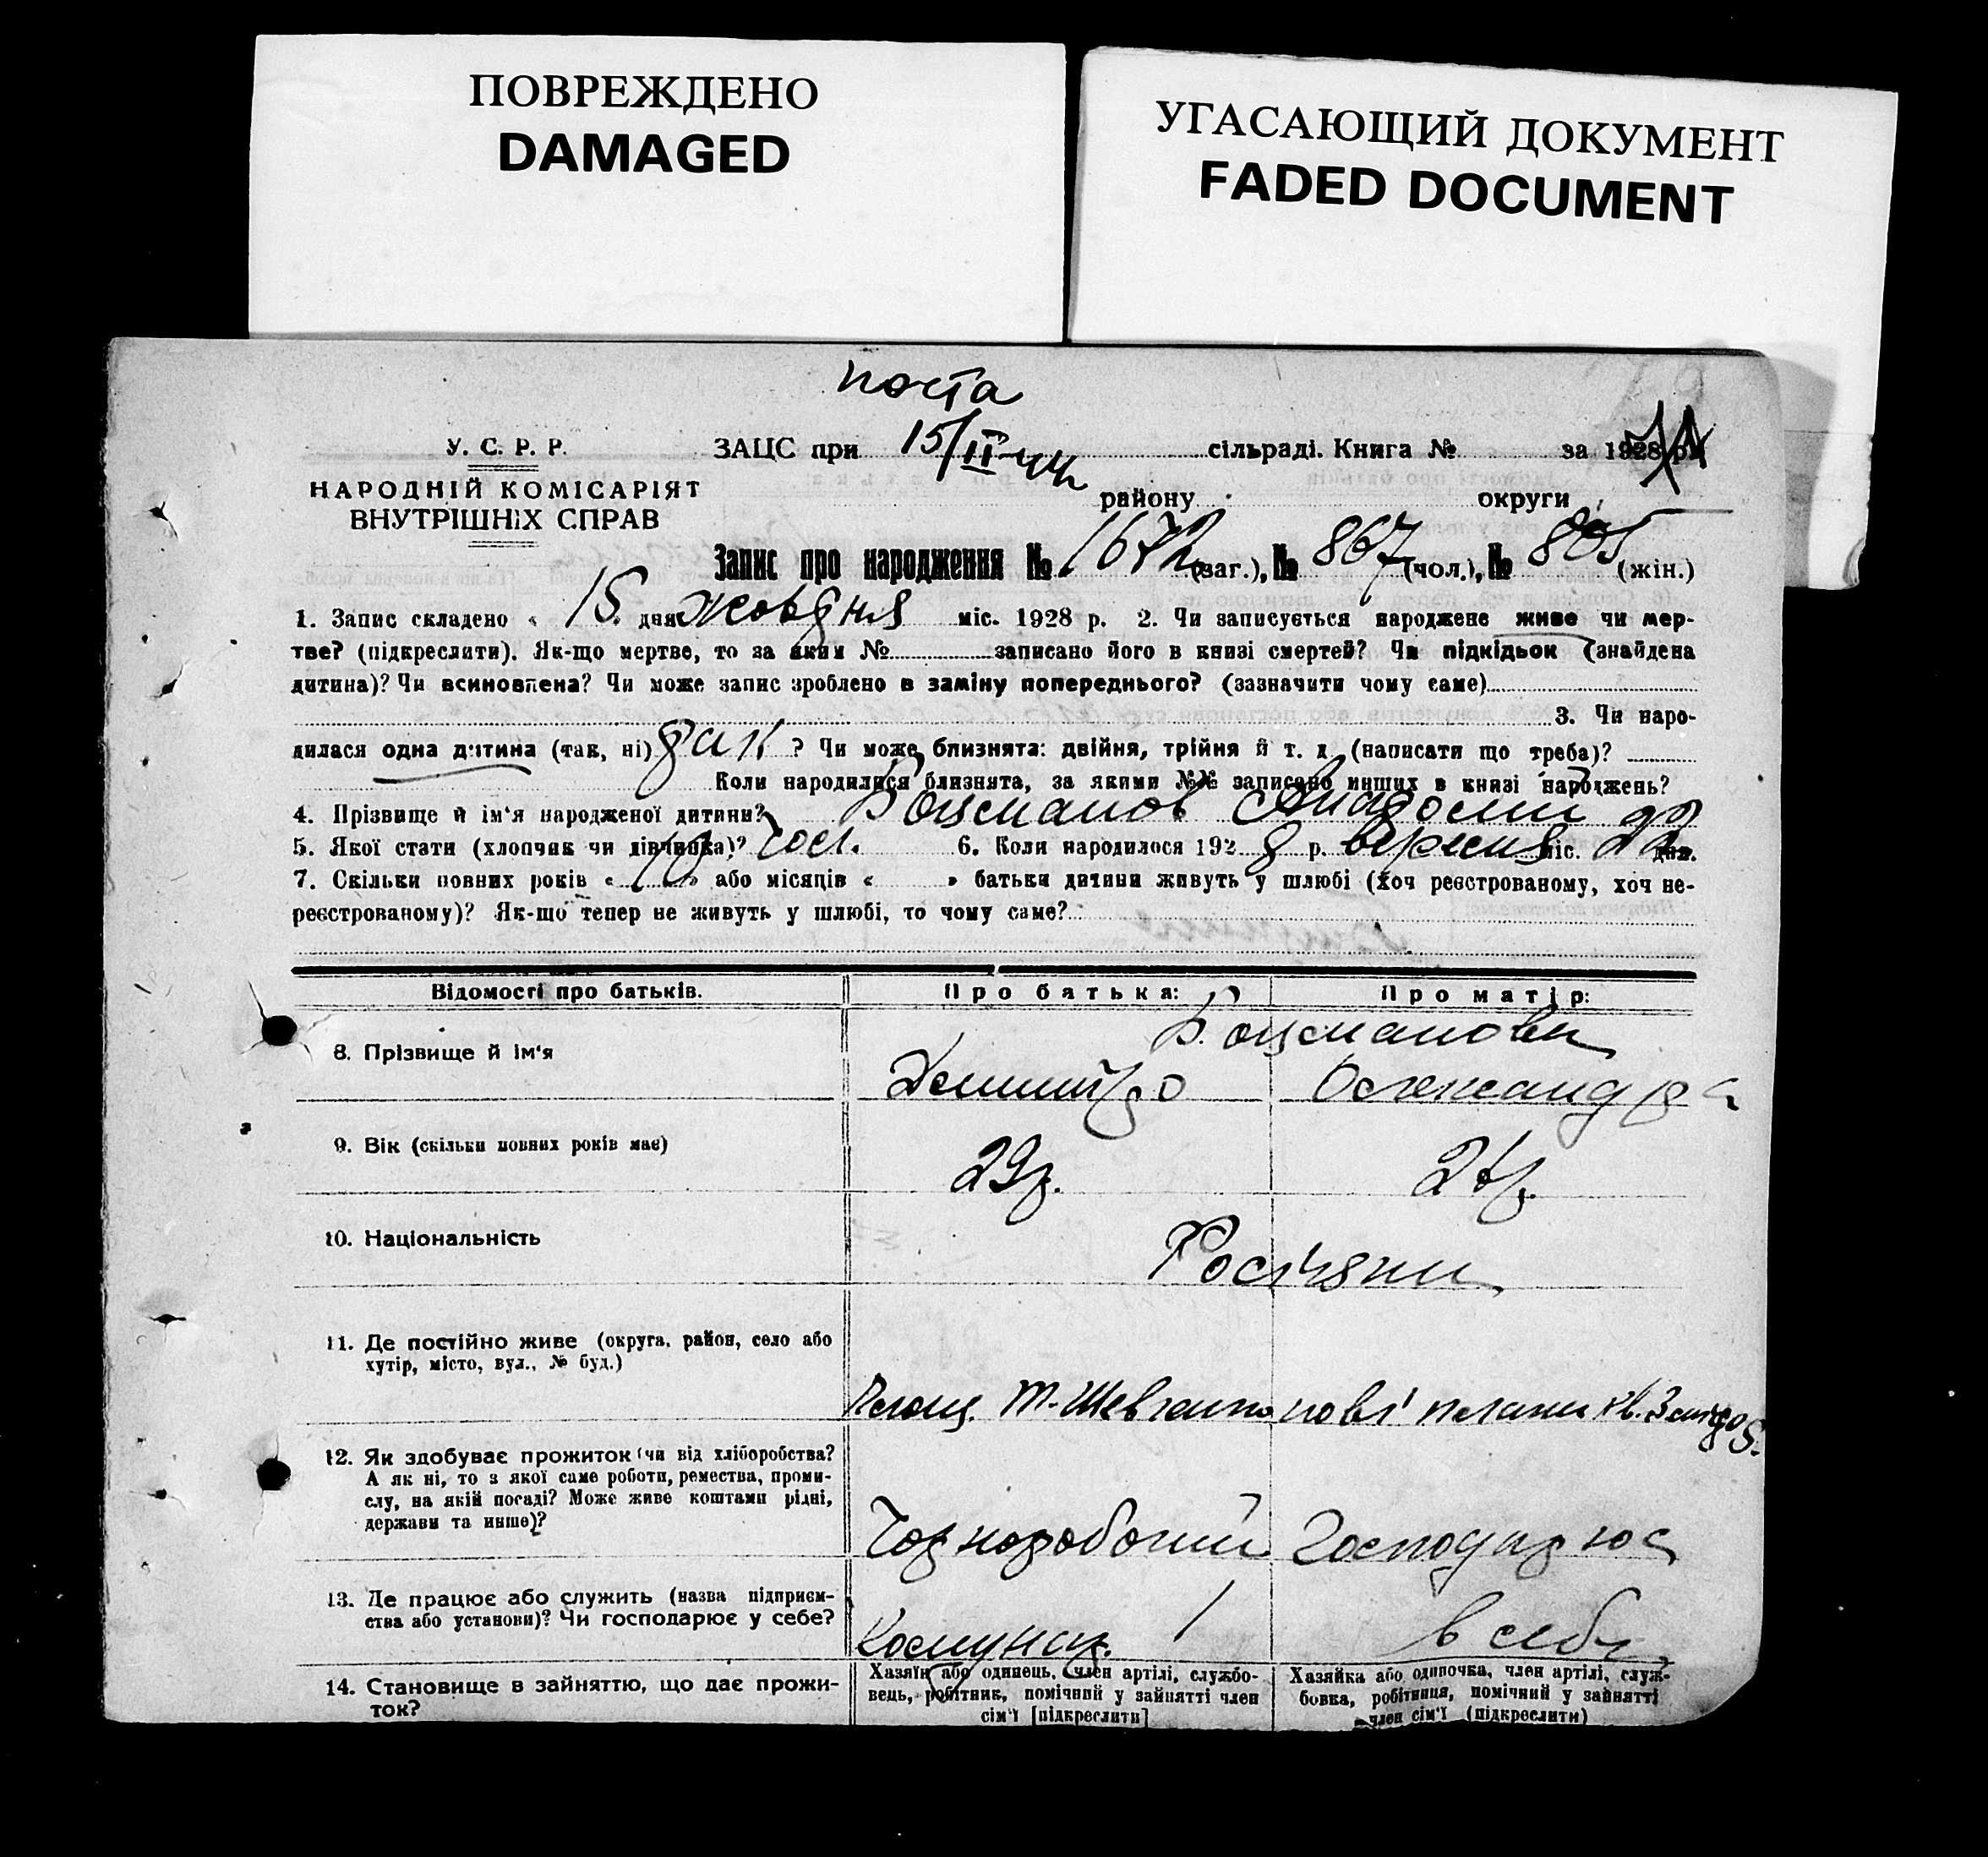 ПОВРЕЖДЕНО
DAMAGED
УГАСАЮЩИЙ ДОКУМЕНТ
FADED DOCUMENT
У. С. Р. Р.
НАРОДНІЙ КОМІСАРІЯТ
ВНУТРІШНІХ СПРАВ
ЗАЦС при 15/II-44 сільраді. Книга № за 1928 р.
району округи
Запис про народження № 1672 (заг.), № 867 (чол.), № 805 (жін.)
1. Запис складено « 15 дня жовтня міс. 1928 р. 2. Чи записується народжене живе чи мер-
тве? (підкреслити). Як-що мертве, то за яким № записано його в книзі смертей? Чи підкідьок (знайдена
дитина)? Чи всиновлена? Чи може запис зроблено в заміну попереднього? (зазначити чому саме)
3. Чи наро-
дилася одна дитина (так, ні) так ? Чи може близнята: двійня, трійня й т. д. (написати що треба)?
Коли народилися близнята, за якими №№ записано инших в книзі народжень?
4. Прізвище й ім'я народженої дитини? Боцманов
5. Якої стати (хлопчик чи дівчинка)? чол. 6. Коли народилося 1928 р. вересня міс. 22 дня.
7. Скільки повних років « 10 » або місяців « » батьки дитини живуть у шлюбі (хоч реєстрованому, хоч не-
реєстрованому)? Як-що тепер не живуть у шлюбі, то чому саме?
Відомості про батьків. Про батька: Про матір:
Боцманови
8. Прізвище й ім'я Дмитро Олександра
9. Вік (скільки повних років має) 29 р.
10. Національність Росіяни
11. Де постійно живе (округа, район, село або
хутір, місто, вул., № буд.)
Площ. Т-Шевченко нові плани кв.
12. Як здобуває прожиток (чи від хліборобства?
А як ні, то з якої саме роботи, ремества, проми-
слу, на якій посаді? Може живе коштами рідні,
держави та инше)?
Чорноробочий Господарює
13. Де працює або служить (назва підприєм-
ства або установи)? Чи господарює у себе?
Комунар. в себе
14. Становище в зайняттю, що дає прожи-
ток?
Хазяїн або одинець, член артілі, службо-
вець, робітник, помічний у зайнятті член
сім'ї [підкреслити]
Хазяйка або одиночка, член артілі, служ-
бовка, робітниця, помічний у зайнятті
член сім'ї (підкреслити)